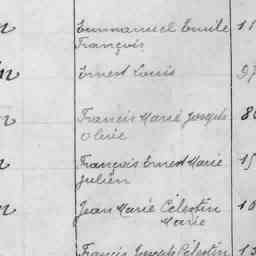 Emmanuel Emile 11
François
Ernest Louis 97
Francis Marie Joseph 86
Olivie
François Ernest Marie 15
Julien
Jean Marie Célestin 10
Marie
Francis Joseph Célestin 13